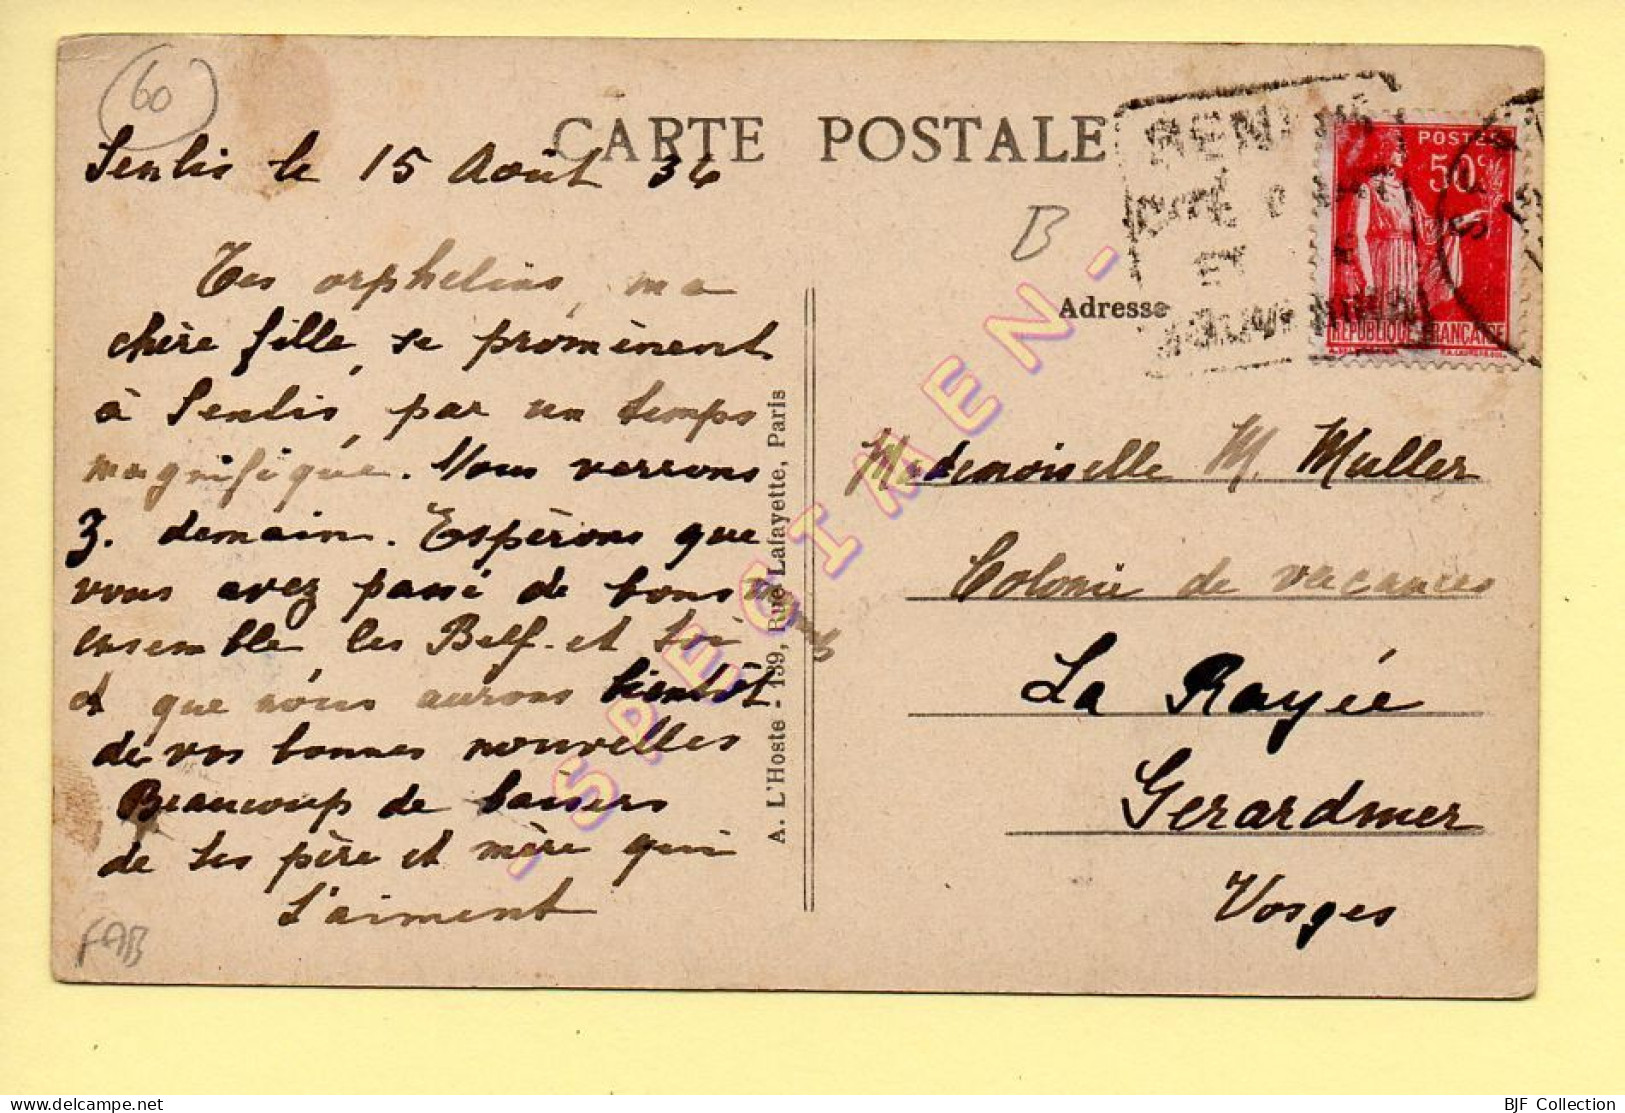 60
CARTE POSTALE
Senlis le 15 Août 36
B
POSTES
50c
RÉPUBLIQUE FRANÇAISE
Adresse
Tes orphelins, ma
chère fille, se promènent
à Senlis, par un temps
magnifique. Nous verrons
Z. demain. Espérons que
vous avez passé de bons moments
ensemble, les Belf. et toi
et que nous aurons bientôt
de vos bonnes nouvelles
Beaucoup de baisers
de tes père et mère qui
t'aiment
FAB
A. L'Hoste - 139, Rue Lafayette, Paris
- SPECIMEN -
Mademoiselle M. Muller
Colonie de vacances
La Rayée
Gerardmer
Vosges
BJF Collection